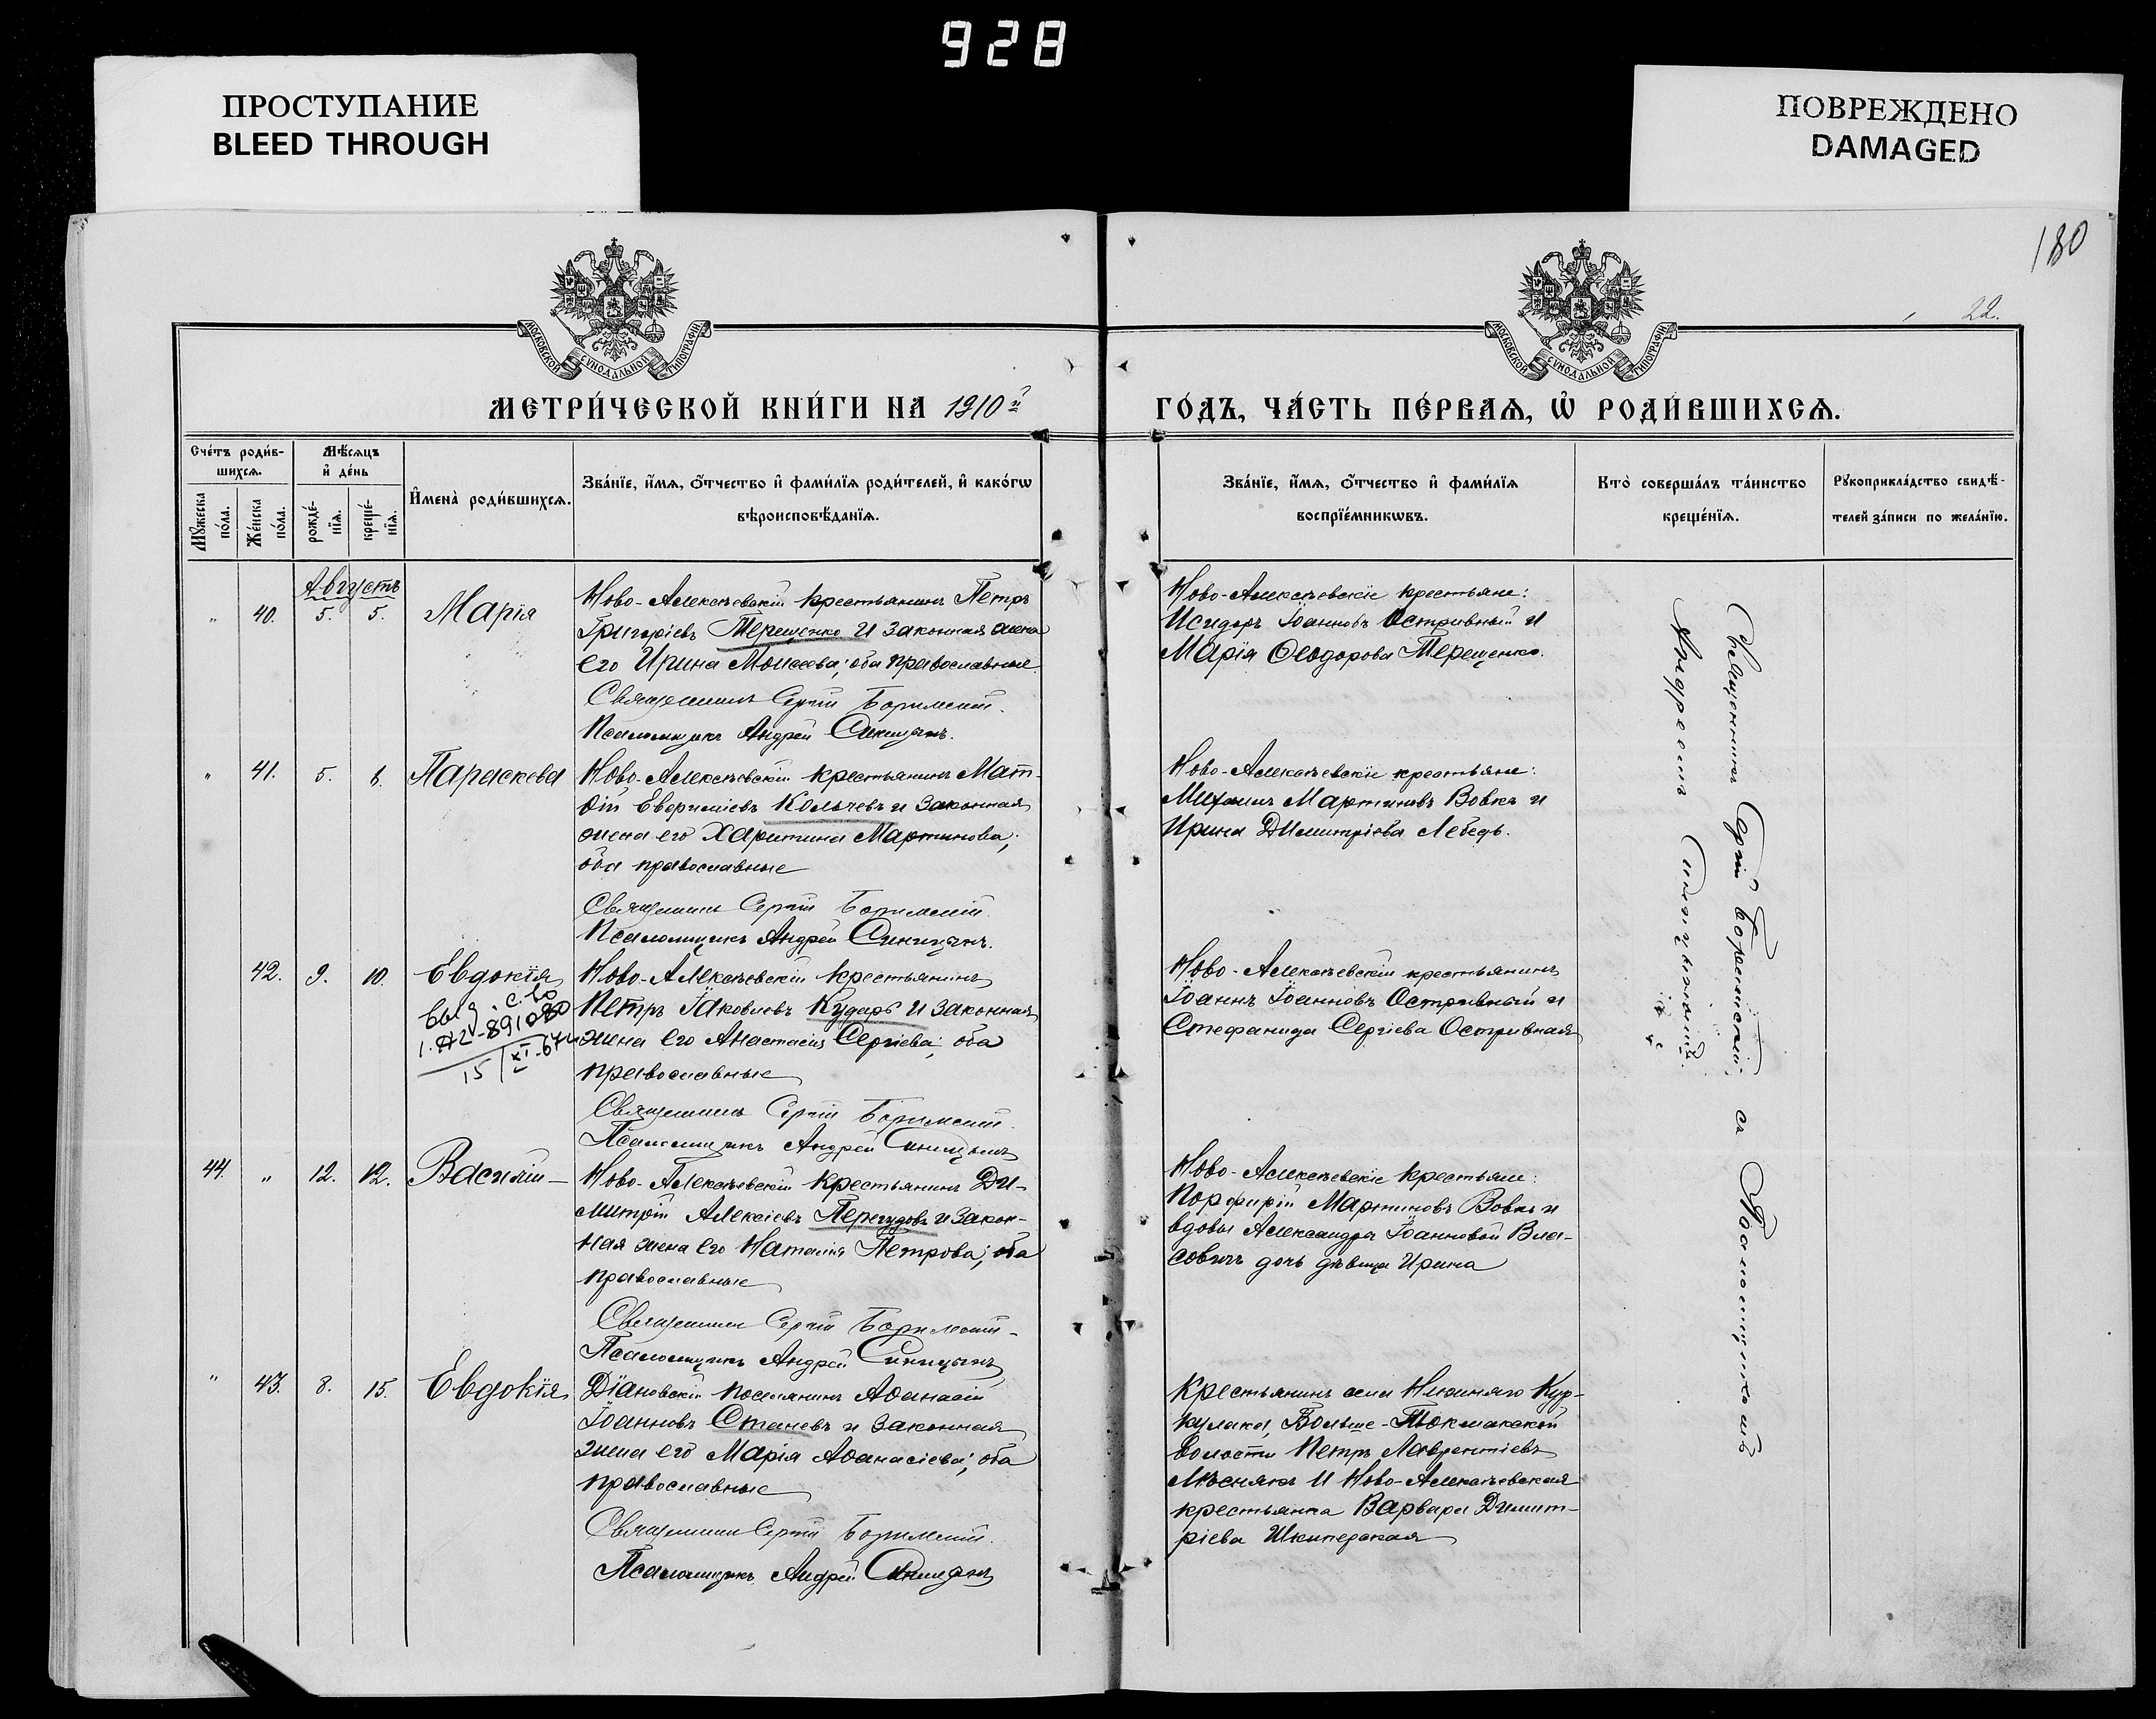 928
ПРОСТУПАНИЕ
BLEED THROUGH
ПОВРЕЖДЕНО
DAMAGED
180
22.
МОСКОВСКОЙ СѴНОДАЛЬНОЙ ТИПОГРАФІИ
МОСКОВСКОЙ СѴНОДАЛЬНОЙ ТИПОГРАФІИ
МЕТРИ́ЧЕСКОЙ КНИ́ГИ НА 1910й
ГО́ДЪ, ЧА́СТЬ ПЕ́РВАѦ, Ѡ҆ РОДИ́ВШИХСѦ.
Сче́тъ роди́в-
шихсѧ.
Мѣ́сѧцъ
и҆ де́нь
Мꙋ́жеска
по́ла.
Же́нска
по́ла.
рожде́-
нїѧ.
креще́-
нїѧ.
И҆мена̀ роди́вшихсѧ.
Зва́нїе, и҆́мѧ, ѻ҆́тчество и҆ фами́лїѧ роди́телей, и҆ како́гѡ
вѣроисповѣ́данїѧ.
Зва́нїе, и҆́мѧ, ѻ҆́тчество и҆ фами́лїѧ
воспрїе́мникѡвъ.
Кто̀ соверша́лъ та́инство
креще́нїѧ.
Рꙋкоприкла́дство свидѣ́-
телей за́писи по жела́нїю.
Августъ
" 40. 5. 5. Марія
Ново-Алексѣевскій крестьянинъ Петръ
Григоріевъ Терещенко и законная жена
его Ирина Моисеева; оба православные
Священникъ Сергій
Псаломщикъ Андрей Синицынъ.
Ново-Алексѣевскіе крестьяне:
Исидоръ Іоанновъ Остривный и
Марія Ѳеодорова Терещенко.
" 41. 5. 6. Параскева
Ново-Алексѣевскій крестьянинъ Мат-
ѳій Евѳиміевъ Кольчевъ и законная
жена его Харитина Мартинова;
оба православные
Священникъ Сергій
Псаломщикъ Андрей Синицынъ.
Ново-Алексѣевскіе крестьяне:
Михаилъ Мартиновъ Вовкъ и
Ирина Димитріева Лебедь.
42. 9. 10. Евдокія
выд. с-во
15/XI-67
Ново-Алексѣевскій крестьянинъ
Петръ Іаковлевъ Кударь и законная
жена его Анастасія Сергіева; оба
православные
Священникъ Сергій
Псаломщикъ Андрей Синицынъ
Ново-Алексѣевскій крестьянинъ
Іоаннъ Іоанновъ Остривный и
Стефанида Сергіева Остривная
44. " 12. 12. Василій
Ново-Алексѣевскій крестьянинъ Ди-
митрій Алексіевъ Перегудовъ и закон-
ная жена его Наталія Петрова; оба
православные
Священникъ Сергій
Псаломщикъ Андрей Синицынъ
Ново-Алексѣевскіе крестьяне:
Порфирій Мартиновъ Вовкъ и
вдовы Александры Іоанновой Вла-
совичъ дочь дѣвица Ирина
" 43. 8. 15. Евдокія
Діановскій поселянинъ Аѳанасій
Іоанновъ Станевъ и законная
жена его Марія Аѳанасіева; оба
православные
Священникъ Сергій
Псаломщикъ Андрей Синицынъ
Крестьянинъ села Нижняго Кур-
кулака, Больше-Токмакской
волости Петръ Лаврентіевъ
и Ново-Алексѣевская
крестьянка Варвара Димит-
ріева Шкиперская
Священникъ Сергій съ Псаломщикомъ
Андреемъ Синицынымъ.